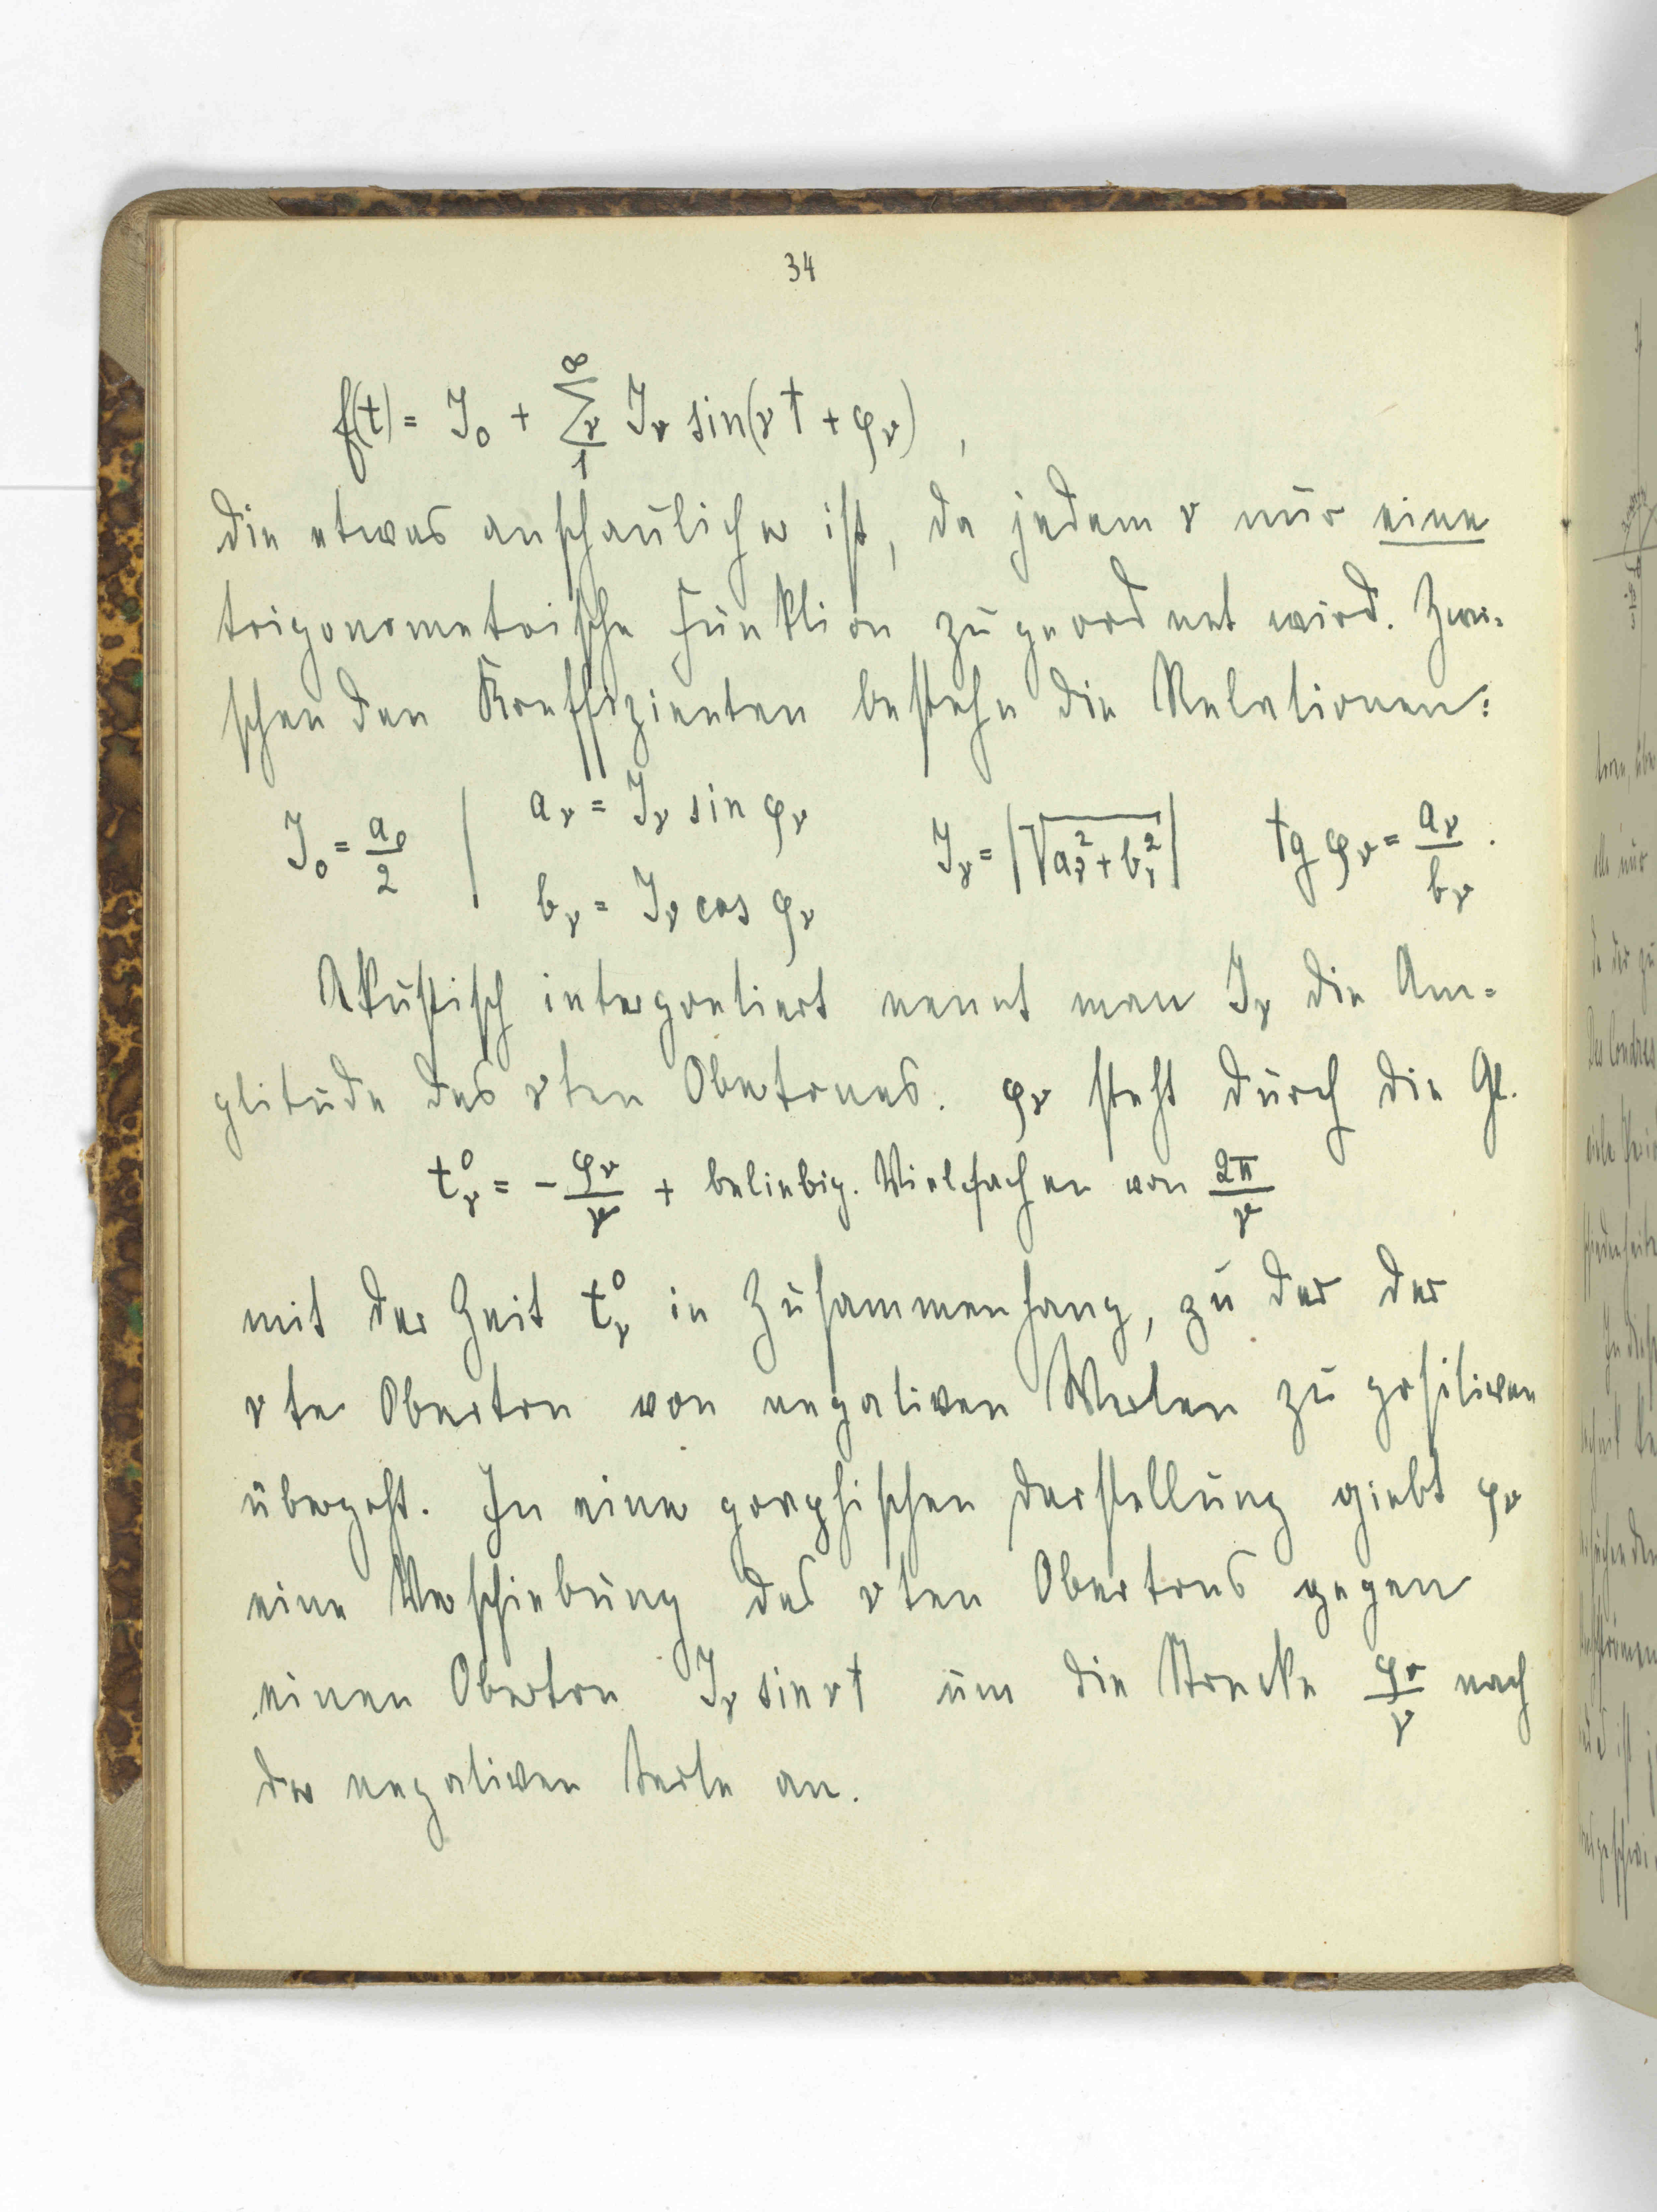 34
f(t) = J₀ + ∑ν₁^∞ Jν sin(νt + φν) ,
die etwas anschaulicher ist, da jedem ν nur eine
trigonometrische Funktion zugeordnet wird. Zwi-
schen den Koeffizienten bestehn die Relationen:
J₀ = a₀/2 | aν = Jν sin φν
bν = Jν cos φν
Jν = |√(aν² + bν²)| tg φν = aν/bν .
Akustisch interpretiert nennt man Jν die Am-
plitude des νten Obertones. φν steht durch die Gl.
tν⁰ = - φν/ν + beliebig. Vielfachen von 2π/ν
mit der Zeit tν⁰ in Zusammenhang, zu der der
νte Oberton von negativen Werten zu positiven
übergeht. In einer graphischen Darstellung giebt φν
eine Verschiebung des νten Obertons gegen
einen Oberton Jν sin νt um die Strecke φν/ν nach
der negativen Seite an.